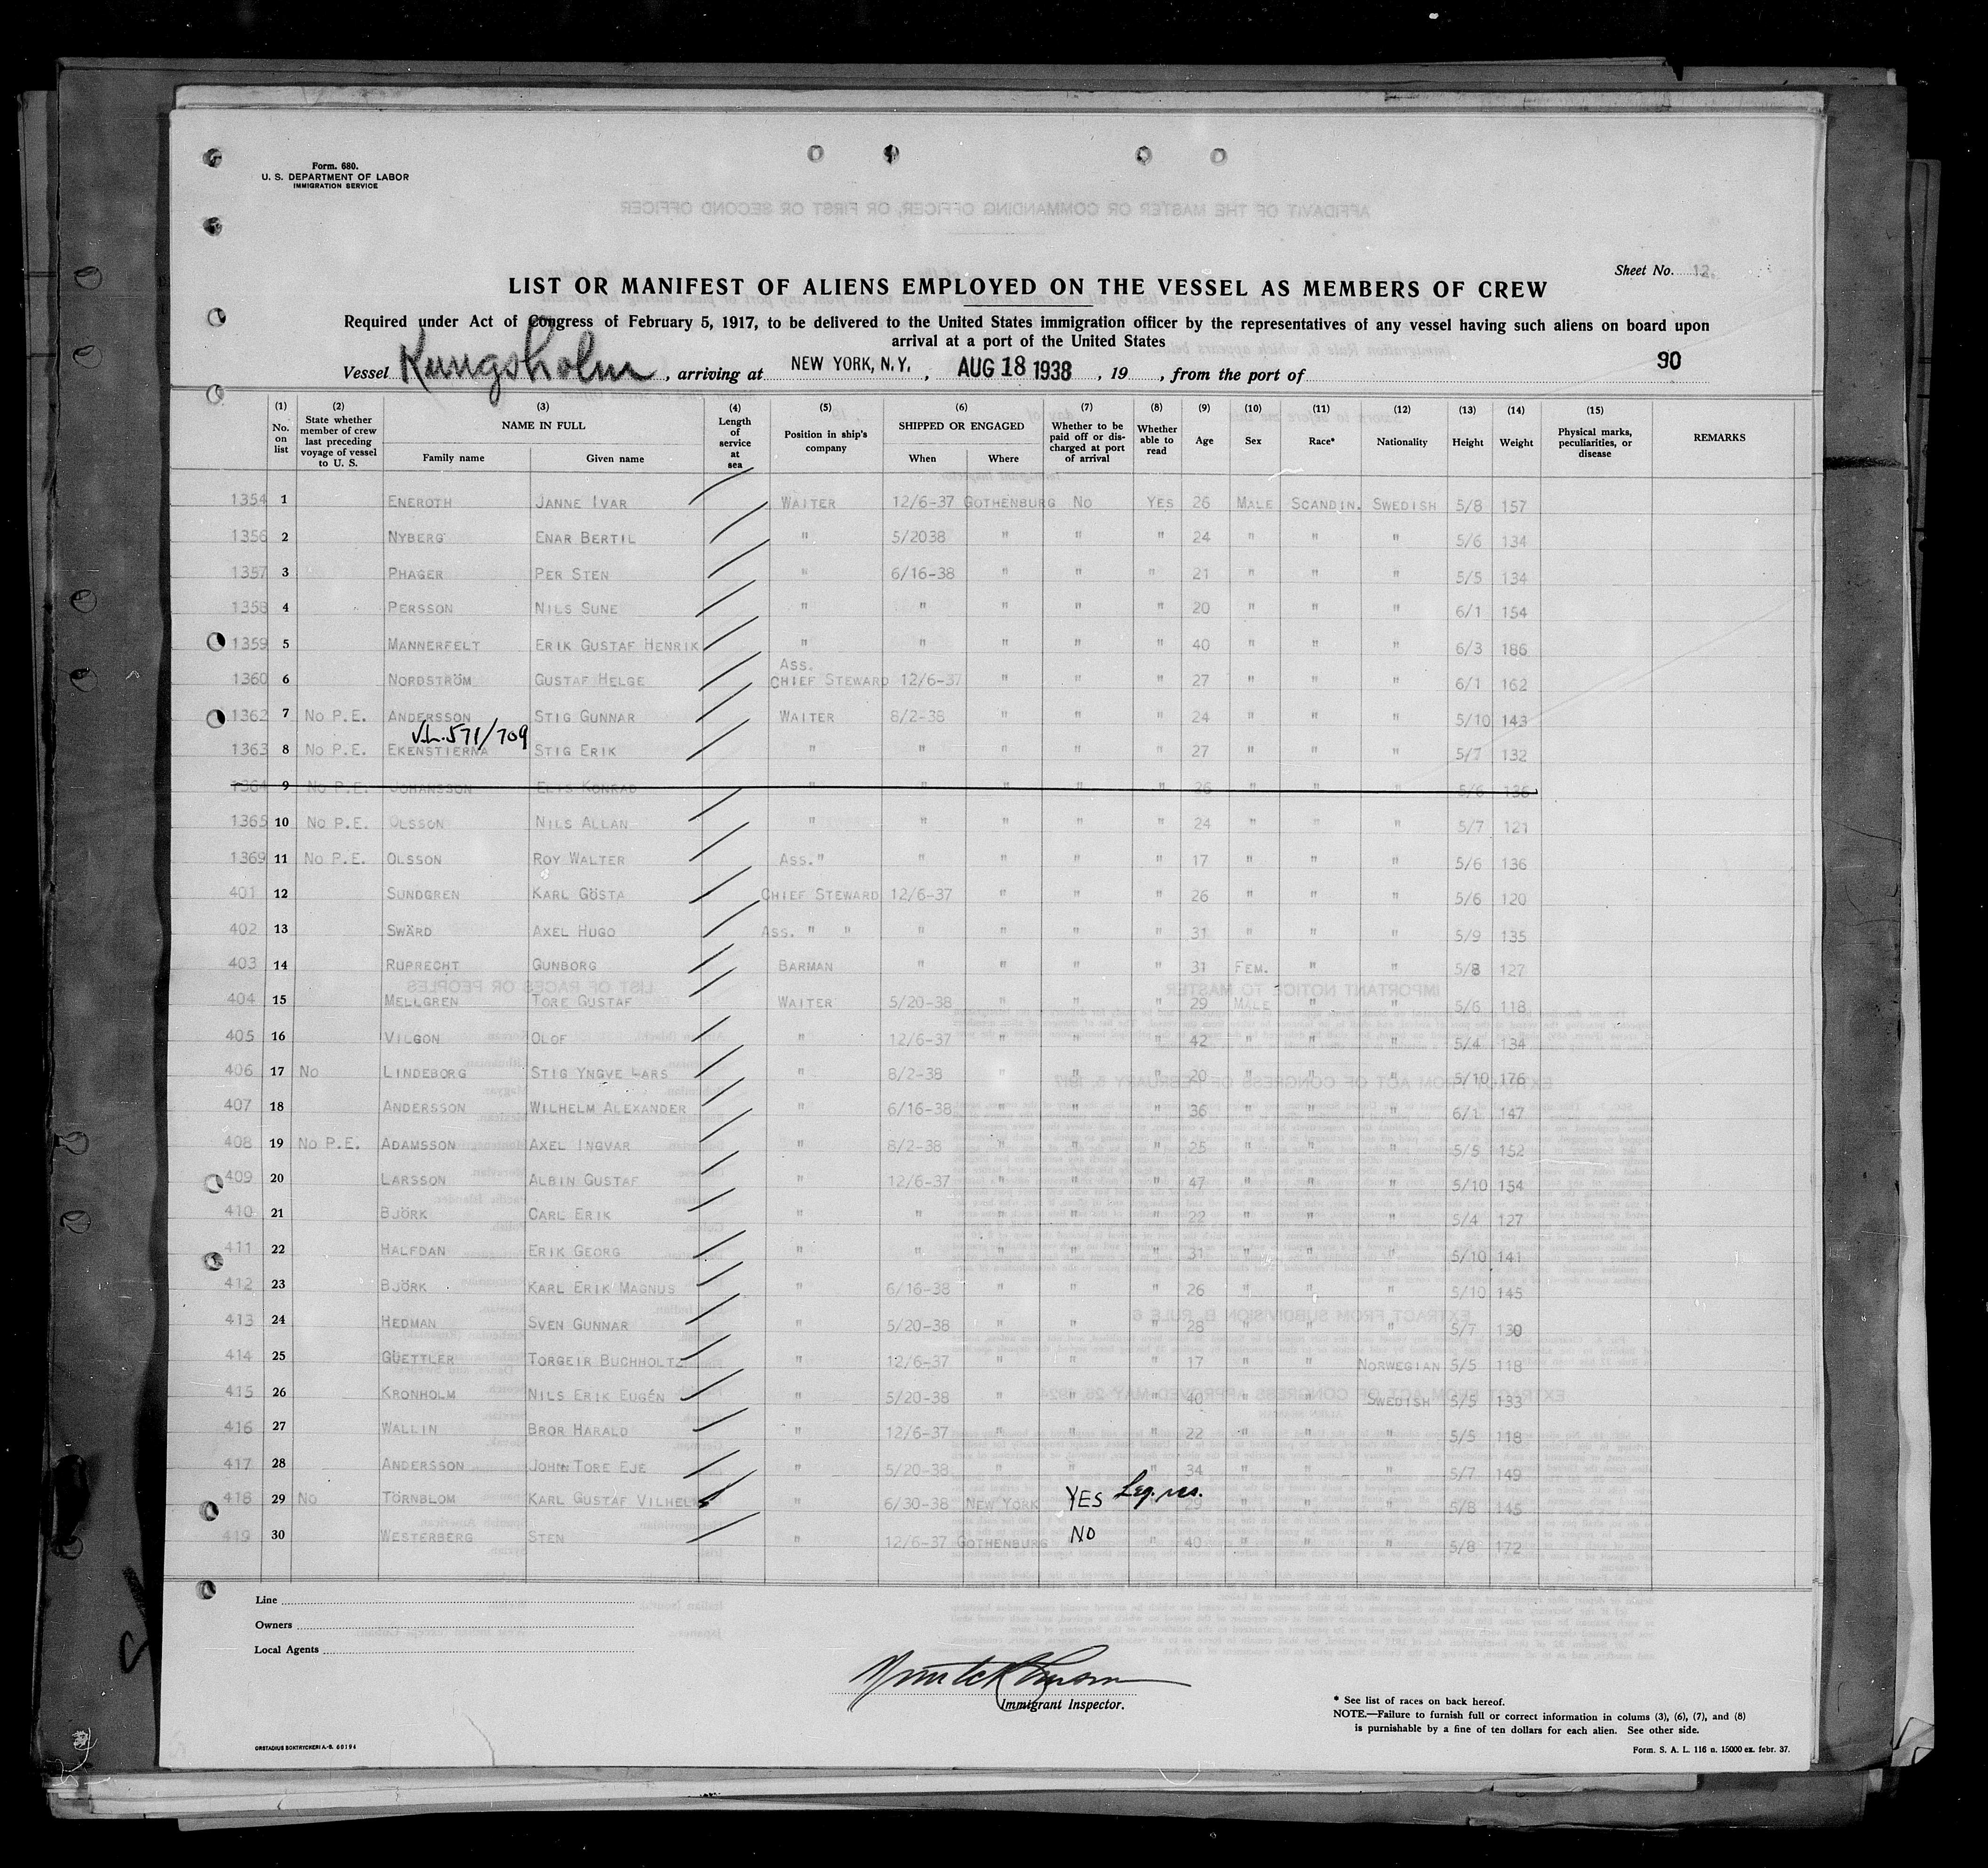 Form. 680.
U. S. DEPARTMENT OF LABOR
IMMIGRATION SERVICE
Sheet No. 12.
LIST OR MANIFEST OF ALIENS EMPLOYED ON THE VESSEL AS MEMBERS OF CREW
Required under Act of Congress of February 5, 1917, to be delivered to the United States immigration officer by the representatives of any vessel having such aliens on board upon
arrival at a port of the United States
90
Vessel Kungsholm, arriving at NEW YORK, N.Y., AUG 18 1938, 19 , from the port of
(1) No. on list (2) State whether member of crew last preceding voyage of vessel to U. S. (3) NAME IN FULL Family name Given name (4) Length of service at sea (5) Position in ship's company (6) SHIPPED OR ENGAGED When Where (7) Whether to be paid off or discharged at port of arrival (8) Whether able to read (9) Age (10) Sex (11) Race* (12) Nationality (13) Height (14) Weight (15) Physical marks, peculiarities, or disease REMARKS
1354 1 ENEROTH JANNE IVAR WAITER 12/6-37 GOTHENBURG NO YES 26 MALE SCANDIN. SWEDISH 5/8 157
1356 2 NYBERG ENAR BERTIL " 5/2038 " " " 24 " " " 5/6 134
1357 3 PHAGER PER STEN " 6/16-38 " " " 21 " " " 5/5 134
1358 4 PERSSON NILS SUNE " " " " " 20 " " " 6/1 154
1359 5 MANNERFELT ERIK GUSTAF HENRIK " " " " " 40 " " " 6/3 186
1360 6 NORDSTRÖM GUSTAF HELGE ASS. CHIEF STEWARD 12/6-37 " " " 27 " " " 6/1 162
1362 7 NO P.E. ANDERSSON STIG GUNNAR WAITER 8/2-38 " " " 24 " " " 5/10 143
V.L. 571/709
1363 8 NO P.E. EKENSTIERNA STIG ERIK " " " " " 27 " " " 5/7 132
1364 9 NO P.E. JOHANSSON ELIS KONRAD " " " " " 26 " " " 5/6 136
1365 10 NO P.E. OLSSON NILS ALLAN " " " " " 24 " " " 5/7 121
1369 11 NO P.E. OLSSON ROY WALTER ASS. " " " " " 17 " " " 5/6 136
401 12 SUNDGREN KARL GÖSTA CHIEF STEWARD 12/6-37 " " " 26 " " " 5/6 120
402 13 SWÄRD AXEL HUGO ASS. " " " " " " 31 " " " 5/9 135
403 14 RUPRECHT GUNBORG BARMAN " " " " 31 FEM. " " 5/8 127
404 15 MELLGREN TORE GUSTAF WAITER 5/20-38 " " " 29 MALE " " 5/6 118
405 16 VILGON OLOF " 12/6-37 " " " 42 " " " 5/4 134
406 17 NO LINDEBORG STIG YNGVE LARS " 8/2-38 " " " 20 " " " 5/10 176
407 18 ANDERSSON WILHELM ALEXANDER " 6/16-38 " " " 36 " " " 6/1 147
408 19 NO P.E. ADAMSSON AXEL INGVAR " 8/2-38 " " " 25 " " " 5/5 152
409 20 LARSSON ALBIN GUSTAF " 12/6-37 " " " 47 " " " 5/10 154
410 21 BJÖRK CARL ERIK " " " " " 22 " " " 5/4 127
411 22 HALFDAN ERIK GEORG " " " " " 31 " " " 5/10 141
412 23 BJÖRK KARL ERIK MAGNUS " 6/16-38 " " " 26 " " " 5/10 145
413 24 HEDMAN SVEN GUNNAR " 5/20-38 " " " 28 " " " 5/7 130
414 25 GUETTLER TORGEIR BUCHHOLTZ " 12/6-37 " " " 17 " " NORWEGIAN 5/5 118
415 26 KRONHOLM NILS ERIK EUGÉN " 5/20-38 " " " 40 " " SWEDISH 5/5 133
416 27 WALLIN BROR HARALD " 12/6-37 " " " 22 " " " 5/5 118
417 28 ANDERSSON JOHN TORE EJE " 5/20-38 " " " 34 " " " 5/7 149
418 29 NO TÖRNBLOM KARL GUSTAF VILHELM " 6/30-38 NEW YORK YES Leg. res. 29 " " " 5/8 145
419 30 WESTERBERG STEN " 12/6-37 GOTHENBURG NO " 40 " " " 5/8 172
Line
Owners
Local Agents
Immigrant Inspector.
* See list of races on back hereof.
NOTE.—Failure to furnish full or correct information in colums (3), (6), (7), and (8)
is punishable by a fine of ten dollars for each alien. See other side.
ORSTADIUS BOKTRYCKERI A.-B. 60194
Form. S. A. L. 116 n. 15000 ex. febr. 37.